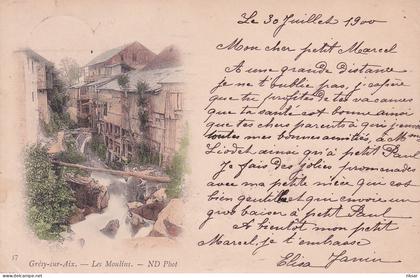 Le 30 Juillet 1900
Mon cher petit Marcel
A une grande distance
je ne t'oublie pas, j'espère
que tu profites de tes vacances
que ta santé est bonne ainsi
que tes chers parents à qui tu
toutes mes bonnes amitiés, à M.
Liodet ainsi qu'à petit Paul
Je fais des jolies promenades
avec ma petite nièce qui est
bien gentille et que envoie un
gros baiser à petit Paul
A bientôt mon petit
Marcel, je t'embrasse
Elisa Janin
17
Grésy-sur-Aix. — Les Moulins. — ND Phot